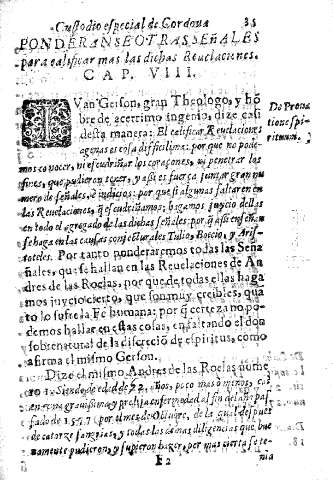 Custodio especial de Cordoua 35
PONDERANSE OTRAS SEÑALES
para calificar mas las dichas Reuelaciones.
CAP. VIII.
IVan Gerson, gran Theologo, y hõ
bre de acerrimo ingenio, dize casi
desta manera: El calificar Reuelaciones
agenas es cosa dificilima: por que no pode-
mos conocer, ni escudriñar los coraçones, ni penetrar los
fines, que pudieron tener, y assi es fuerça juntar gran nu
mero de señales, è indicios: por que si algunas faltaren en
las Reuelaciones, q̃ escudriñamos; hagamos juyzio dellas
en todo el agregado de las dichas señales: por q̃ assi enseñan
se haga en las causas conjecturales Tulio, Boecio, y Aris-
toteles. Por tanto ponderaremos todas las Señ
ales, que se hallan en las Reuelaciones de An
dres de las Roelas, por que de todas ellas haga
mos juyzio cierto, que son muy creibles, quã
to lo sufre la Fè humana; por q̃ certeza no po-
demos hallar en estas cosas, en faltando el don
sobrenatural de la discreciõ de espiritus, como
afirma el mismo Gerson.
Dize el mismo Andres de las Roelas nume
ro 1. Siendo de edad de años, poco mas ò menos, caì
en una grauissima y prolija enfermedad al fin del año pas
sado de 1577 por el mes de Otubre, de la qual despues
de catorze sangrias, y todas las demas diligencias que bue
namente pudieron, y supieron hazer, por mas cierta se te-
F 2 nia
De Proua
tione spi-
rituum.